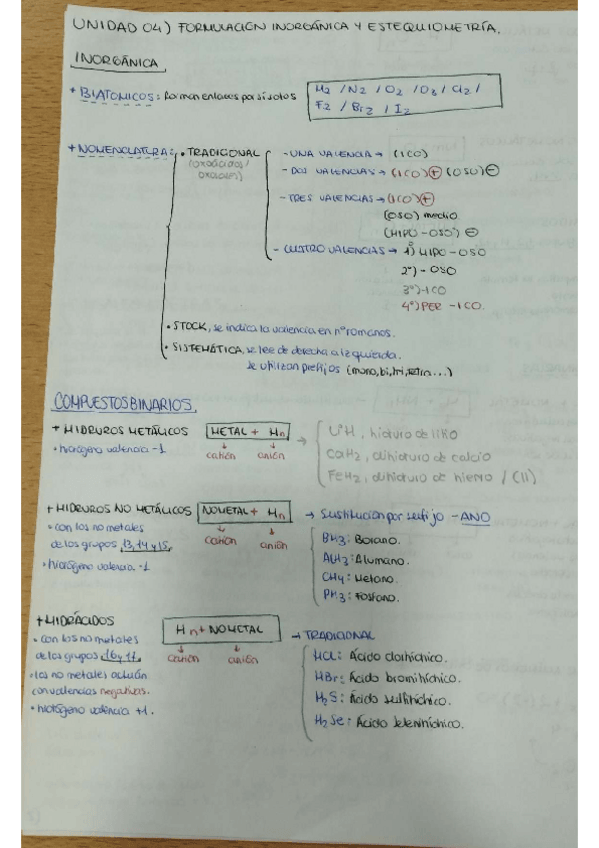 UNIDAD 04) FORMULACIÓN INORGÁNICA Y ESTEQUIOMETRÍA.
INORGÁNICA
+ BIATOMICOS: forman enlaces por sí solos
H2 / N2 / O2 / O3 / Cl2 /
F2 / Br2 / I2
+ NOMENCLATURA:
• TRADICIONAL
(oxoácidos/
oxosales)
- UNA VALENCIA → (ICO)
- DOS VALENCIAS → (ICO) + (OSO) -
- TRES VALENCIAS → (ICO) +
(OSO) medio
(HIPO-OSO) -
- CUATRO VALENCIAS → 1º) HIPO-OSO
2º) - OSO
3º) - ICO
4º) PER - ICO.
• STOCK, se indica la valencia en nº romanos.
• SISTEMÁTICA, se lee de derecha a izquierda.
se utilizan prefijos (mono, bi, tri, tetra...)
COMPUESTOS BINARIOS.
+ HIDRUROS METÁLICOS METAL + Hn →
• hidrógeno valencia -1
catión anión
LiH, hidruro de litio
CaH2, dihidruro de calcio
FeH2, dihidruro de hierro / (II)
+ HIDRUROS NO METÁLICOS NO METAL + Hn → Sustitución por sufijo - ANO
• con los no metales
de los grupos 13, 14 y 15.
• hidrógeno valencia -1
catión anión
BH3: Borano.
AlH3: Alumano.
CH4: Metano.
PH3: Fosfano.
+ HIDRÁCIDOS Hn + NO METAL → TRADICIONAL
• con los no metales
de los grupos 16 y 17.
• los no metales actúan
con valencias negativas.
• hidrógeno valencia +1.
catión anión
HCl: Ácido clorhídrico.
HBr: Ácido bromhídrico.
H2S: Ácido sulfhídrico.
H2Se: Ácido selenhídrico.